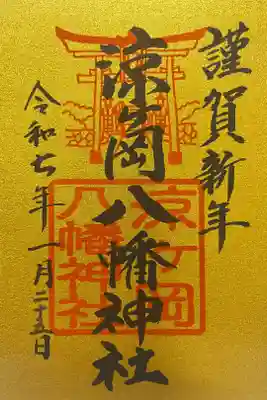 謹賀新年
涼ケ岡八幡神社
令和七年一月二十五日
涼ケ岡
八幡神社